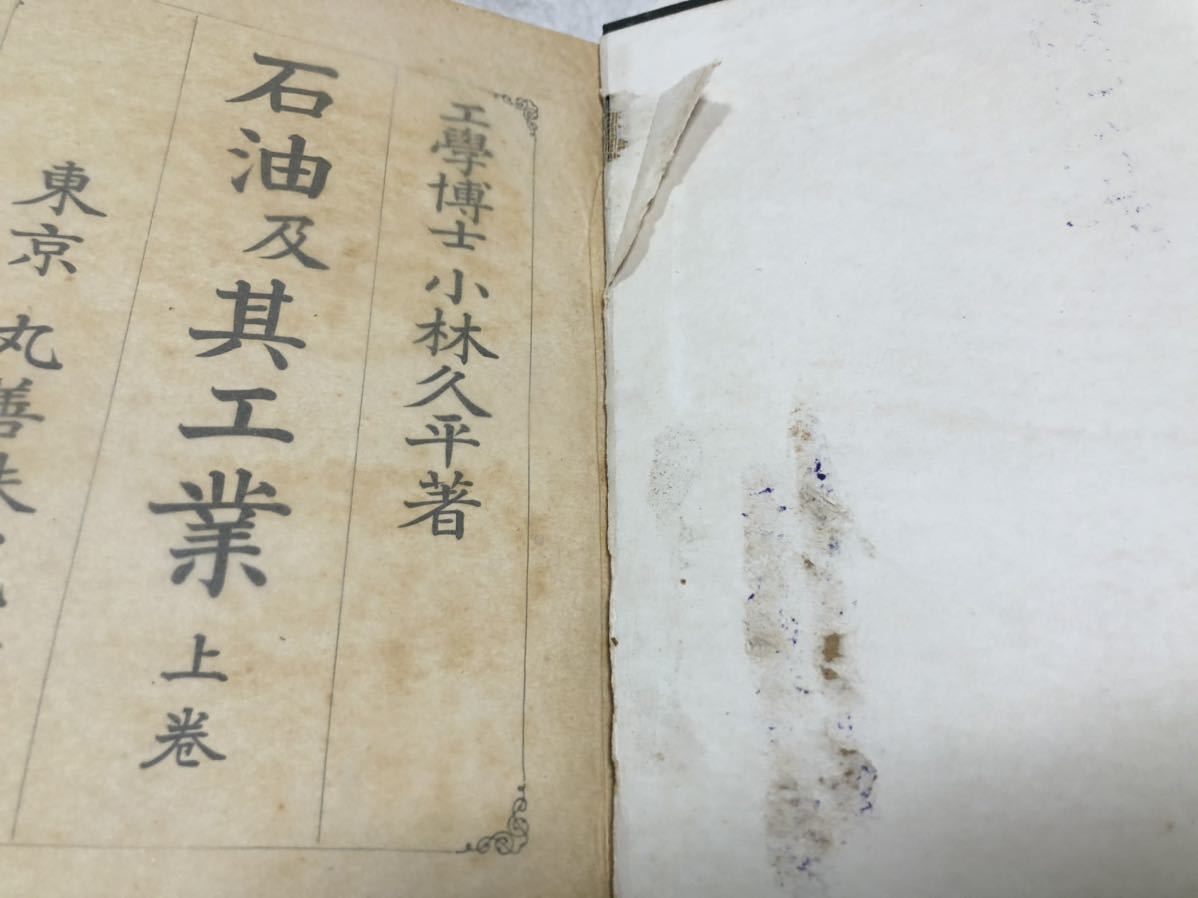 工學博士 小林久平著
石油及其工業 上卷
東京 丸善株